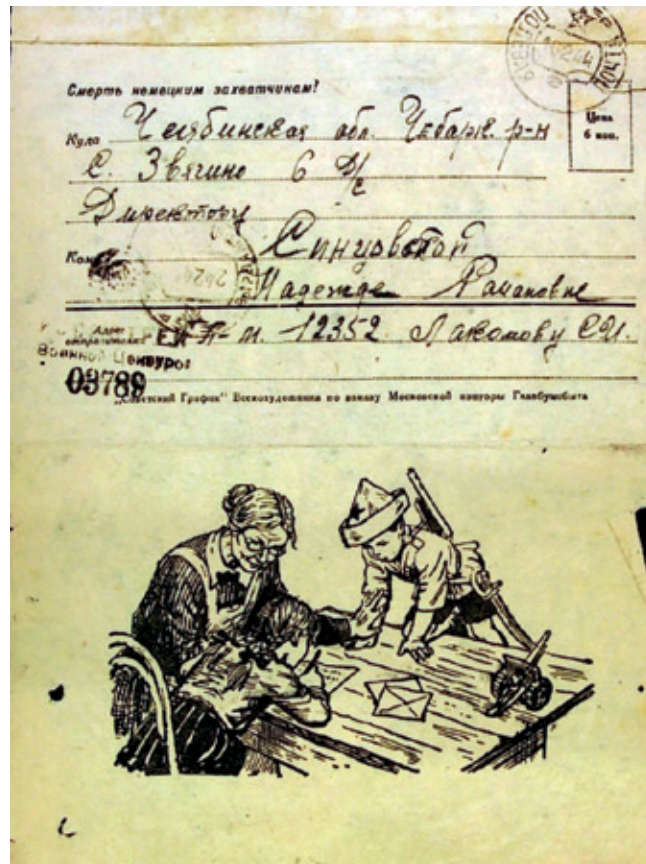 Смерть немецким захватчикам!
Цена
6 коп.
Куда Челябинская обл. Чебарк. р-н
С. Звягино 6 Д/с
Директору
Кому Синцовской
Надежде Рамановне
Адрес отправителя П-м. 12352 Лакомову С.И.
Военной Цензурой
03789
„Советский График" Всекохудожника по заказу Московской конторы Главбумсбыта